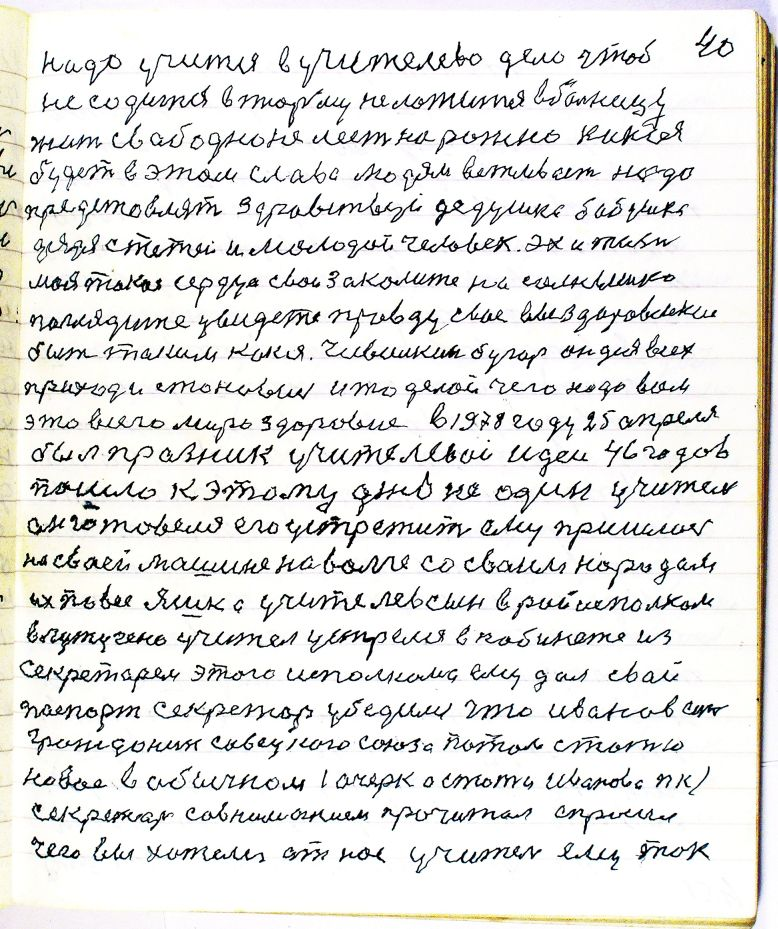 40
надо учится в учителево дело чтоб
не содится в тюрму не ложится в болницу
жит свабодно не лест на рожно какая
будет в этом слава людям ветливаст надо
предстовлят здравствуй дедушка бабушка
дядя с тетей и молодой человек. эх и жизн
моя такоя сердца свои заколите на солнышко
поглядите увидете провду свое выздаровление
быт таким как я. Чивилкин бугор он для всех
приходи становис и то делой чего надо вам
это всего мира здоровие в 1978 году 25 апреля
был празник учителевой идеи 46 годов
пошло к этому дню не один учител
он готовелся его устретит ему пришлос
на своей машине на волге со своим народам
их повес яшка учителев сын в рой исполком
в чутучено учител устрелся в кобинете из
секретарем этого исполкома ему дал свой
паспорт секретар убедилс что иванов
гражданин савецкого союза потом статю
новое в обычном (очерк о стати Иванова пк)
секретар со вниманием прочитал спросил
чего вы хотели от нас учител ему так